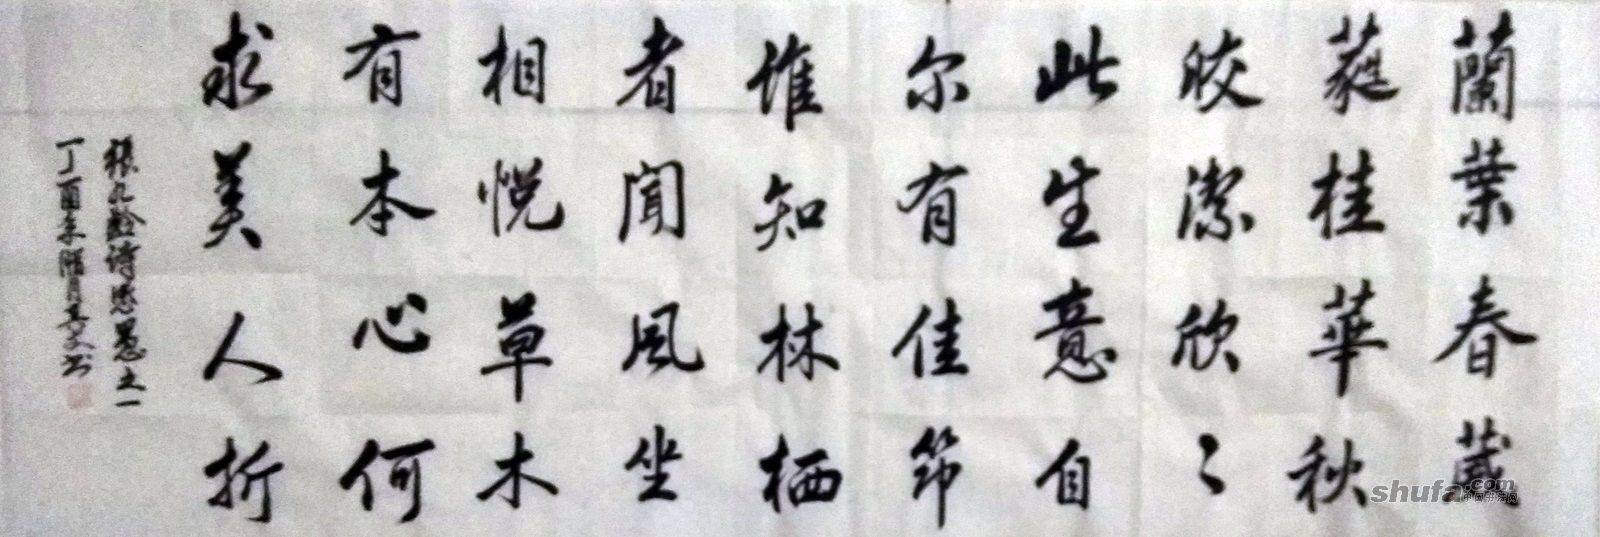 蘭葉春葳
蕤桂華秋
皎潔欣々
此生意自
尔有佳節
誰知林栖
者聞風坐
相悦草木
有本心何
求美人折
張九齡詩感遇之一
丁酉年腊月其文书
shufa.com